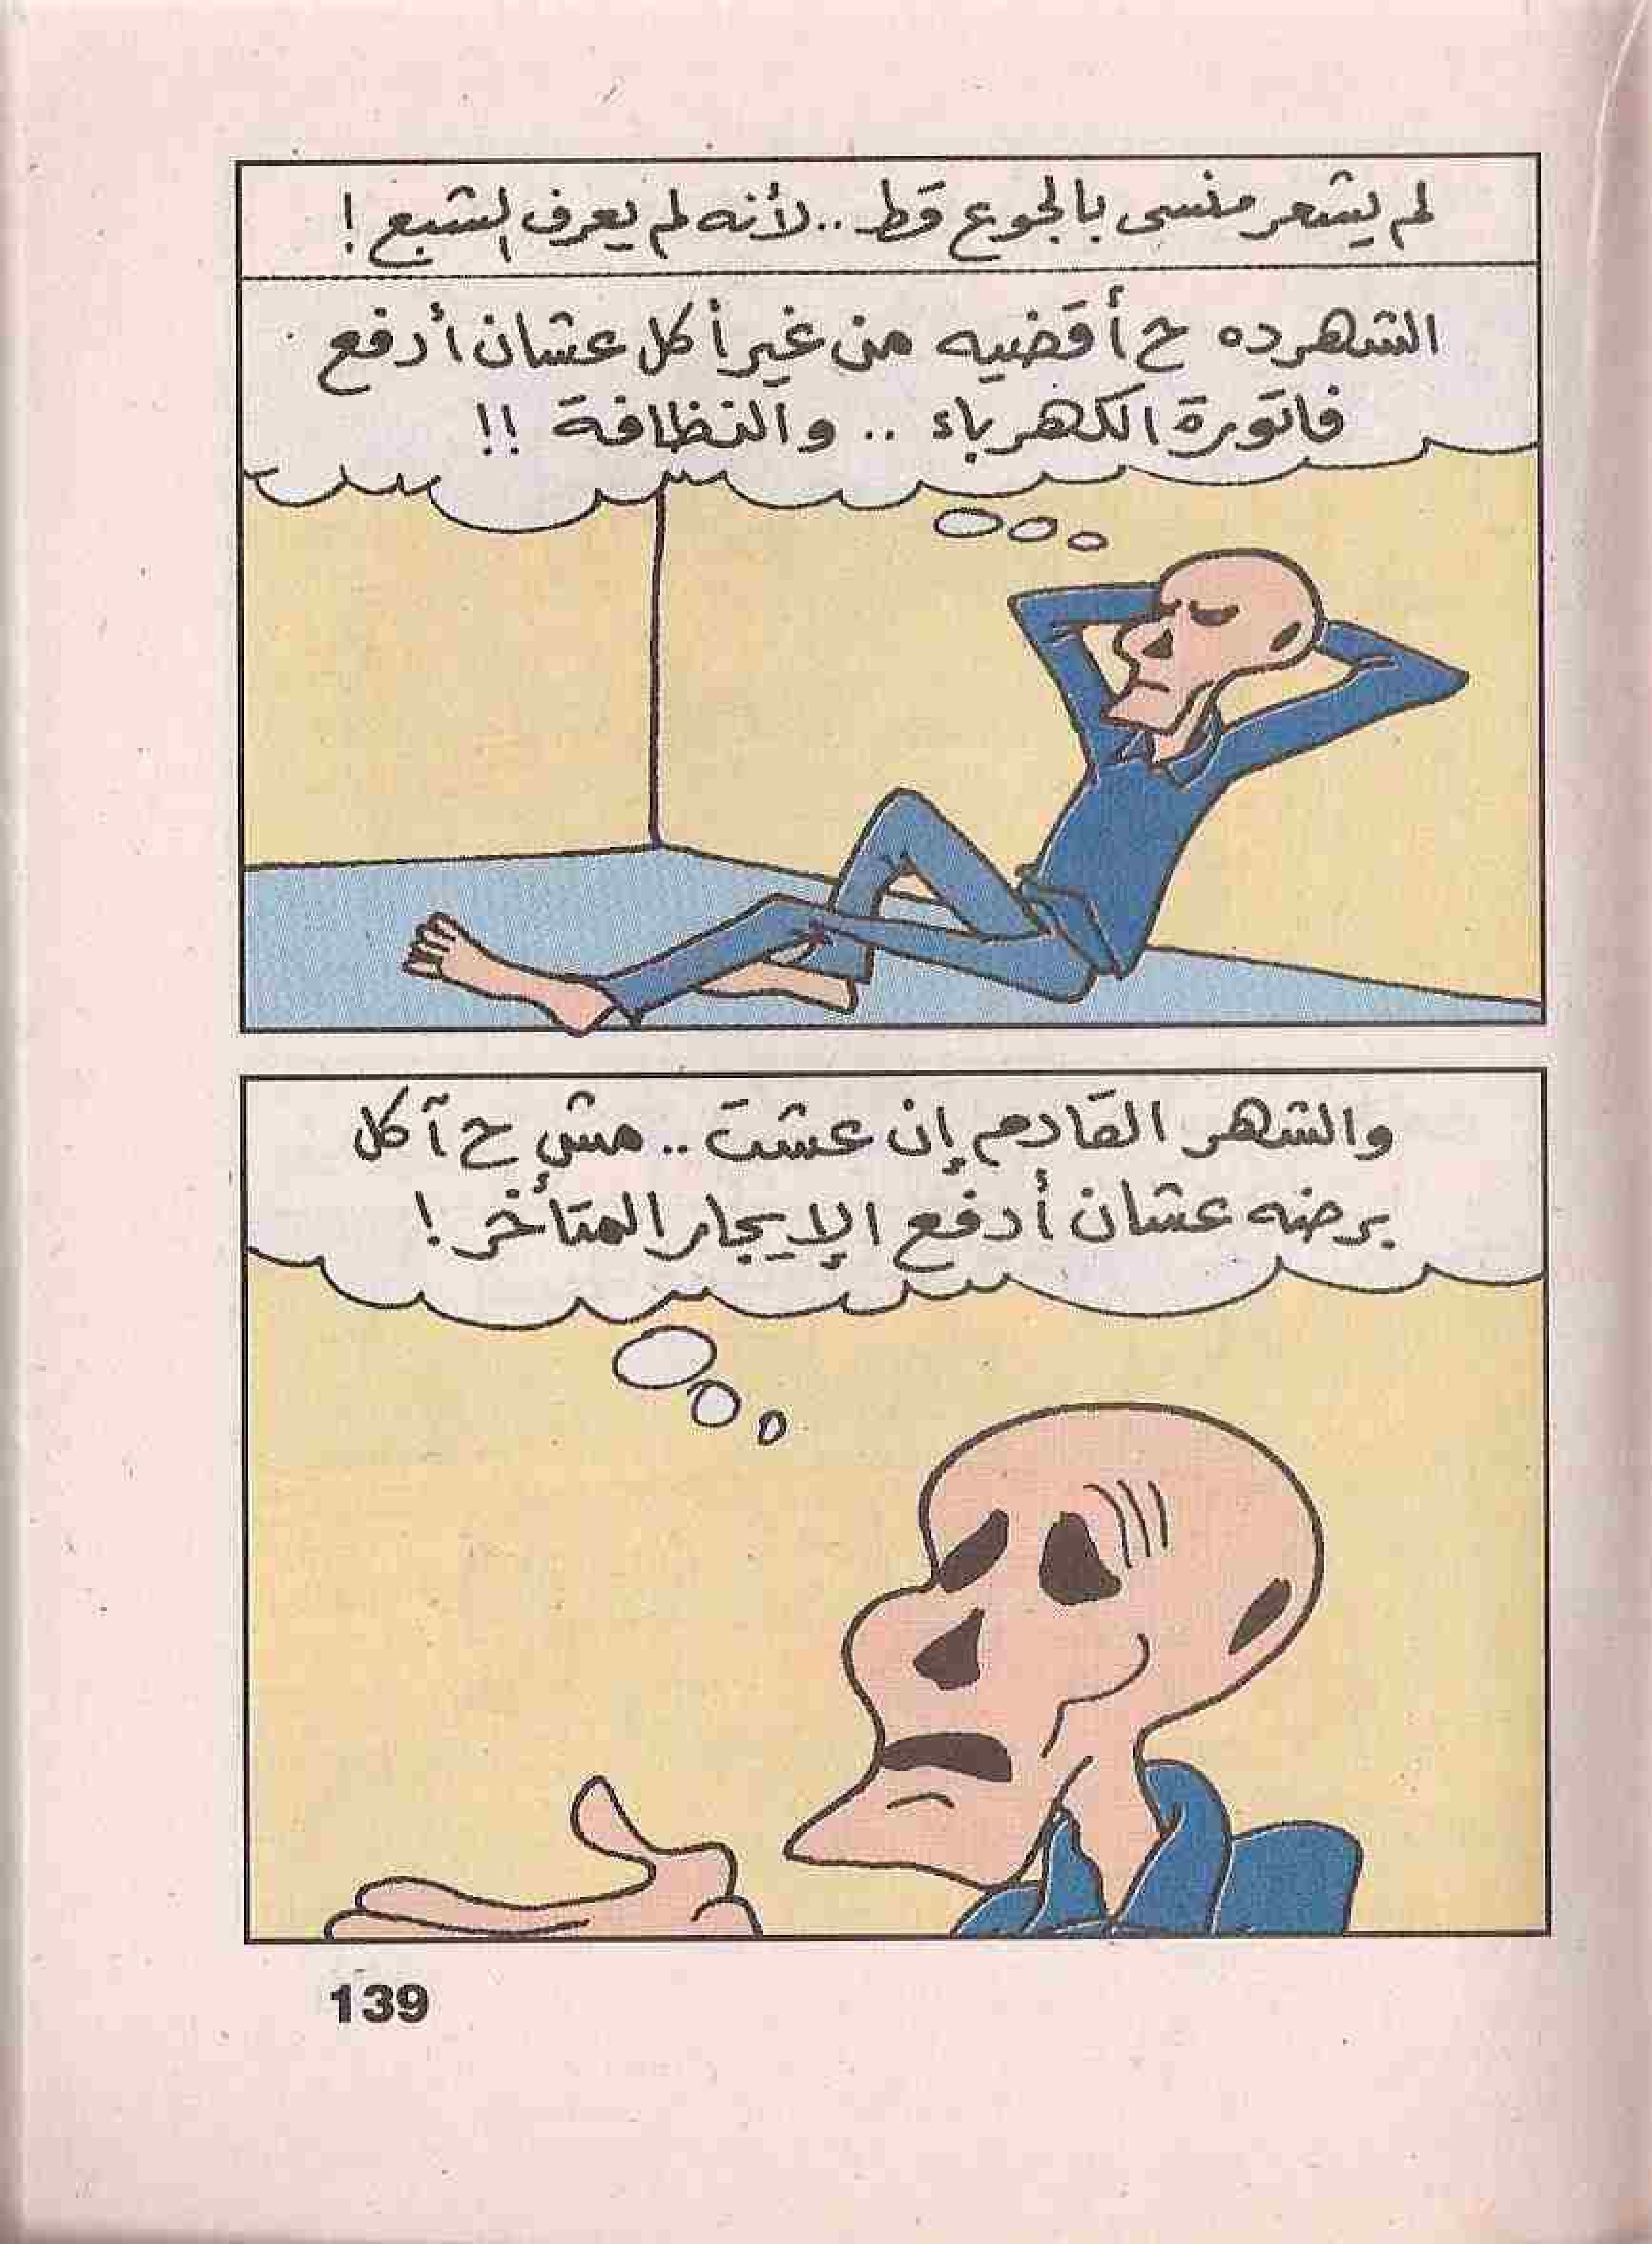 لم يشعر منسى بالجوع قط .. لأنه لم يعرف الشبع !
الشهر ده ح أقضيه من غير أكل عشان أدفع
فاتورة الكهرباء .. والنظافة !!
والشهر القادم إن عشت .. مش ح آكل
برضه عشان أدفع الإيجار المتأخر !
139